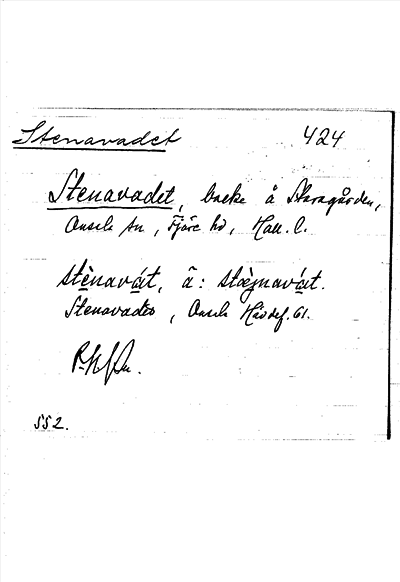 Stenavadet 424
Stenavadet, backe å Skaragården,
Onsala sn, Fjäre hd, Hall. l.
stènavát, ä: stæ̀gnavát.
Stenavadet, Onsala Hävdef. 61.
552.